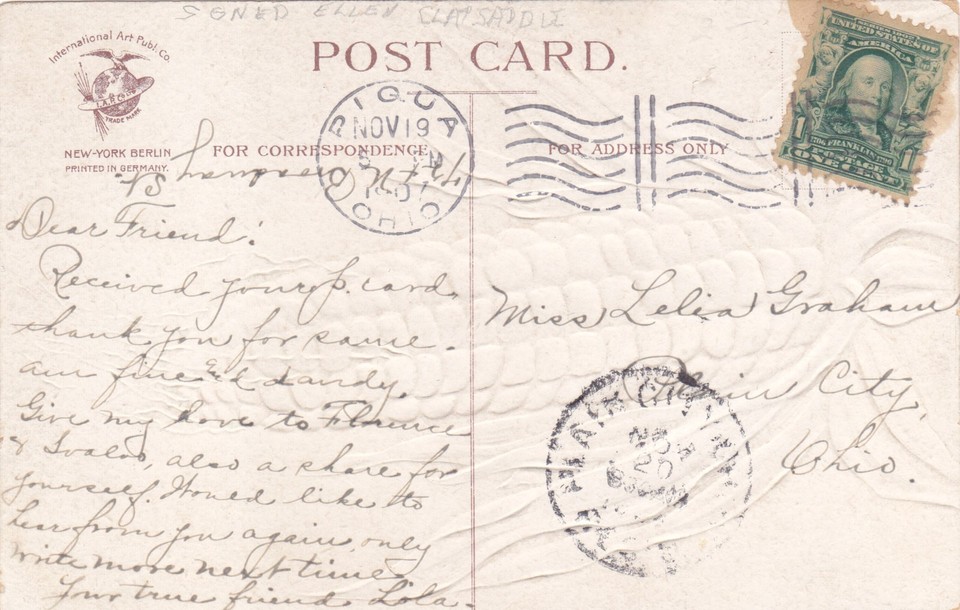 SIGNED ELLEN CLAPSADDLE
International Art Publ. Co.
POST CARD.
I.A.P.Co.
TRADE MARK
NEW-YORK BERLIN
PRINTED IN GERMANY.
FOR CORRESPONDENCE
FOR ADDRESS ONLY
PIQUA
NOV 19
OHIO
UNITED STATES OF
AMERICA
1706 FRANKLIN 1790
1 POSTAGE 1
ONE CENT
Dear Friend!
Received your p. card
thank you for same.
am fine and dandy.
Give my love to Florence
& also a share for
yourself. Would like to
hear from you again, only
write more next time
Your true friend Lola.
Miss Lelia Graham
Plain City,
Ohio.
PLAIN CITY